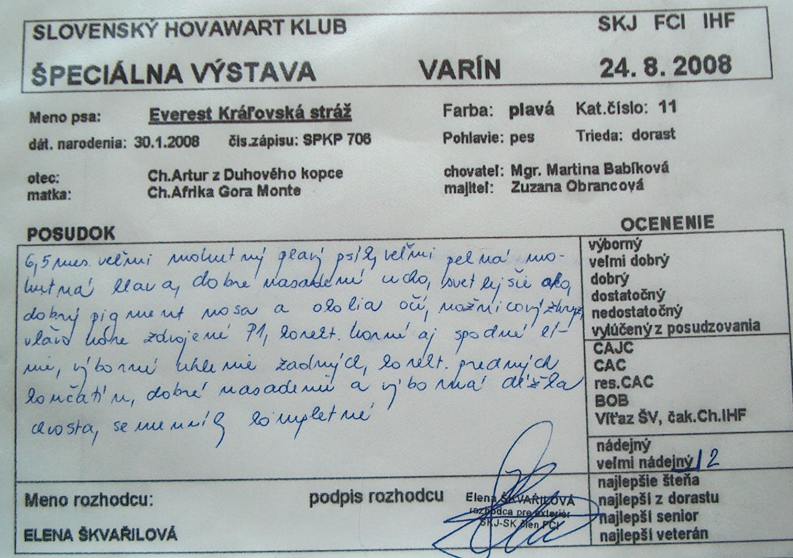 SLOVENSKÝ HOVAWART KLUB SKJ FCI IHF
ŠPECIÁLNA VÝSTAVA VARÍN 24. 8. 2008
Meno psa: Everest Kráľovská stráž Farba: plavá Kat.číslo: 11
dát. narodenia: 30.1.2008 čís.zápisu: SPKP 706 Pohlavie: pes Trieda: dorast
otec: Ch.Artur z Duhového kopce chovateľ: Mgr. Martina Babíková
matka: Ch.Afrika Gora Monte majiteľ: Zuzana Obrancová
POSUDOK
6,5 mes. veľmi mohutný plavý psík, veľmi pekná mo-
hutná hlava, dobre nasadené ucho, svetlejšie oko,
dobrý pigment nosa a okolia očí, nožnicový zhryz,
zdvojené P1, korekt. horné aj spodné lí-
nie, výborné uhlenie zadných, korekt. predných
končatín, dobré nasadenie a výborná dĺžka
chvosta, semenníky kompletné
OCENENIE
výborný
veľmi dobrý
dobrý
dostatočný
nedostatočný
vylúčený z posudzovania
CAJC
CAC
res.CAC
BOB
Víťaz ŠV, čak.Ch.IHF
nádejný
veľmi nádejný /2
najlepšie šteňa
najlepší z dorastu
najlepší senior
najlepší veterán
Meno rozhodcu: podpis rozhodcu
ELENA ŠKVAŘILOVÁ
Elena ŠKVAŘILOVÁ
rozhodca pre exteriér
SKJ-SK člen FCI